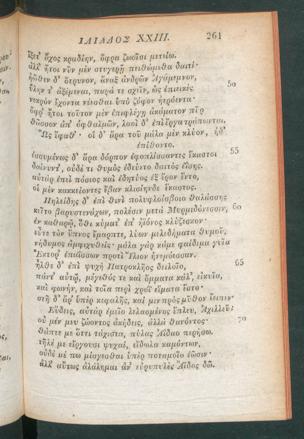 ΙΛΙΑΔΟΣ XXIII. 261
ἵξετ' ἄχος κραδίην, ὄφρα ζωοῖσι μετείω.
ἀλλ' ἤτοι νῦν μὲν στυγερῇ πειθώμεθα δαιτί·
ἠῶθεν δ' ὄτρυνον, ἄναξ ἀνδρῶν Ἀγάμεμνον,
ὕλην τ' ἀξέμεναι, παρά τε σχεῖν, ὡς ἐπιεικὲς 50
νεκρὸν ἔχοντα νέεσθαι ὑπὸ ζόφον ἠερόεντα·
ὄφρ' ἤτοι τοῦτον μὲν ἐπιφλέγῃ ἀκάματον πῦρ
θᾶσσον ἀπ' ὀφθαλμῶν, λαοὶ δ' ἐπὶ ἔργα τράπωνται.
Ὣς ἔφαθ'· οἱ δ' ἄρα τοῦ μάλα μὲν κλύον, ἠδ'
ἐπίθοντο.
ἐσσυμένως δ' ἄρα δόρπον ἐφοπλίσσαντες ἕκαστοι 55
δαίνυντ', οὐδέ τι θυμὸς ἐδεύετο δαιτὸς ἐΐσης.
αὐτὰρ ἐπεὶ πόσιος καὶ ἐδητύος ἐξ ἔρον ἕντο,
οἱ μὲν κακκείοντες ἔβαν κλισίηνδε ἕκαστος.
Πηλείδης δ' ἐπὶ θινὶ πολυφλοίσβοιο θαλάσσης
κεῖτο βαρυστενάχων, πολέσιν μετὰ Μυρμιδόνεσσιν, 60
ἐν καθαρῷ, ὅθι κύματ' ἐπ' ἠϊόνος κλύζεσκον·
εὖτε τὸν ὕπνος ἔμαρπτε, λύων μελεδήματα θυμοῦ,
νήδυμος ἀμφιχυθείς· μάλα γὰρ κάμε φαίδιμα γυῖα
Ἕκτορ' ἐπαΐσσων προτὶ Ἴλιον ἠνεμόεσσαν.
ἦλθε δ' ἐπὶ ψυχὴ Πατροκλῆος δειλοῖο, 65
πάντ' αὐτῷ, μέγεθός τε καὶ ὄμματα κάλ', εἰκυῖα,
καὶ φωνὴν, καὶ τοῖα περὶ χροῒ εἵματα ἕστο·
στῆ δ' ἄρ' ὑπὲρ κεφαλῆς, καί μιν πρὸς μῦθον ἔειπεν·
Εὕδεις, αὐτὰρ ἐμεῖο λελασμένος ἔπλευ, Ἀχιλλεῦ·
οὐ μέν μευ ζώοντος ἀκήδεις, ἀλλὰ θανόντος· 70
θάπτε με ὅττι τάχιστα, πύλας Ἀΐδαο περήσω.
τῆλέ με εἴργουσι ψυχαὶ, εἴδωλα καμόντων,
οὐδέ μέ πω μίσγεσθαι ὑπὲρ ποταμοῖο ἐῶσιν·
ἀλλ' αὔτως ἀλάλημαι ἀν' εὐρυπυλὲς Ἄϊδος δῶ.